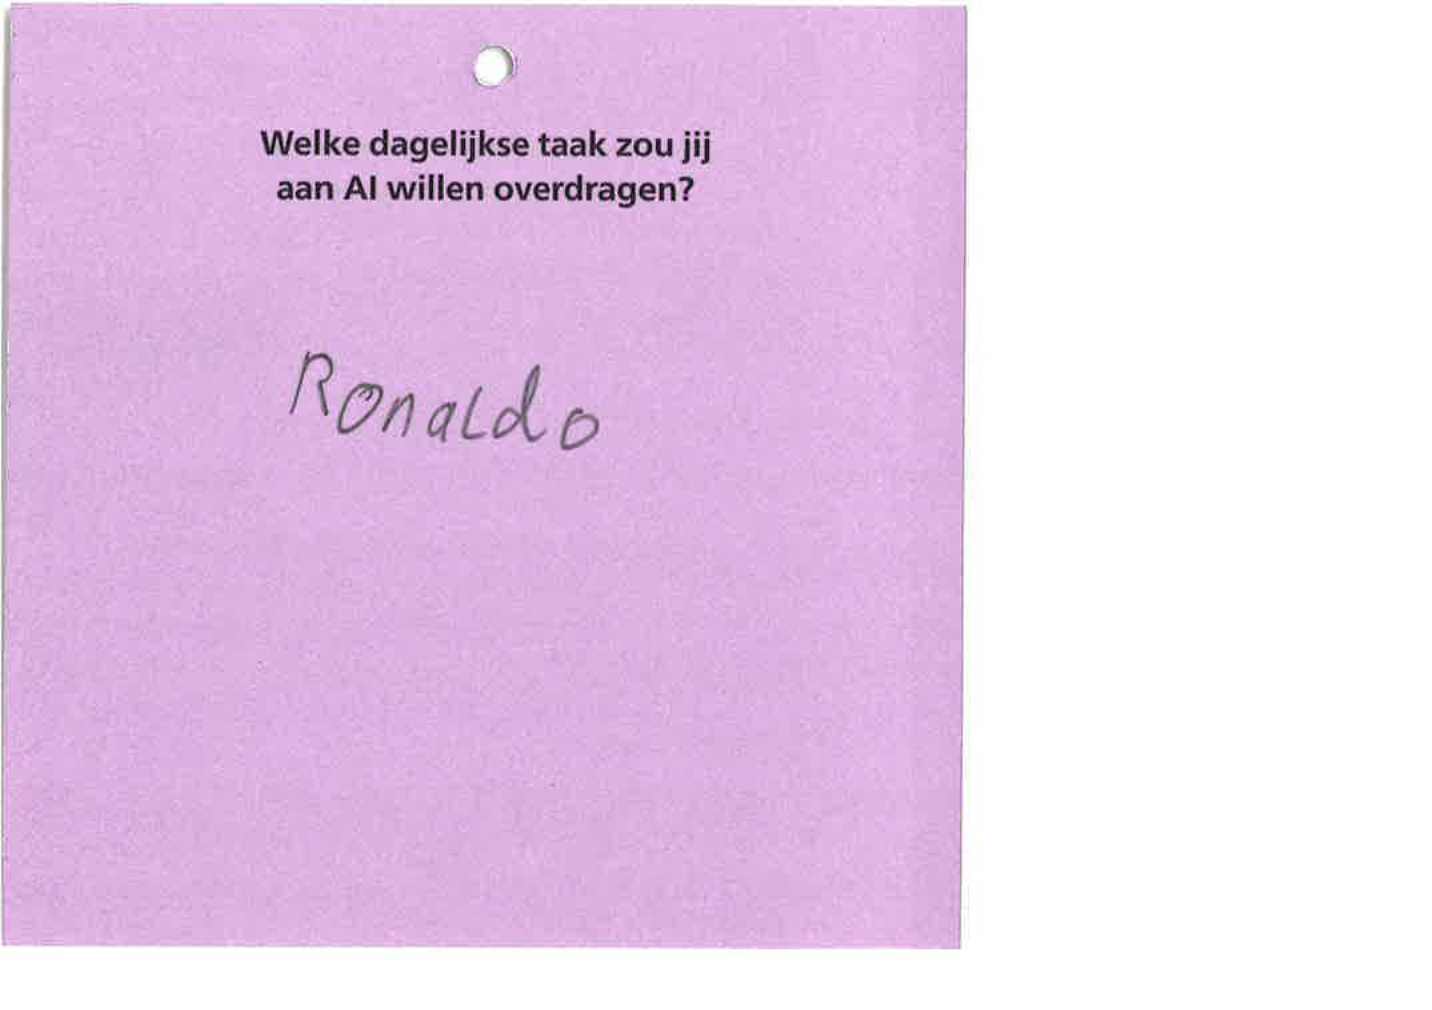 Welke dagelijkse taak zou jij
aan AI willen overdragen?
Ronaldo